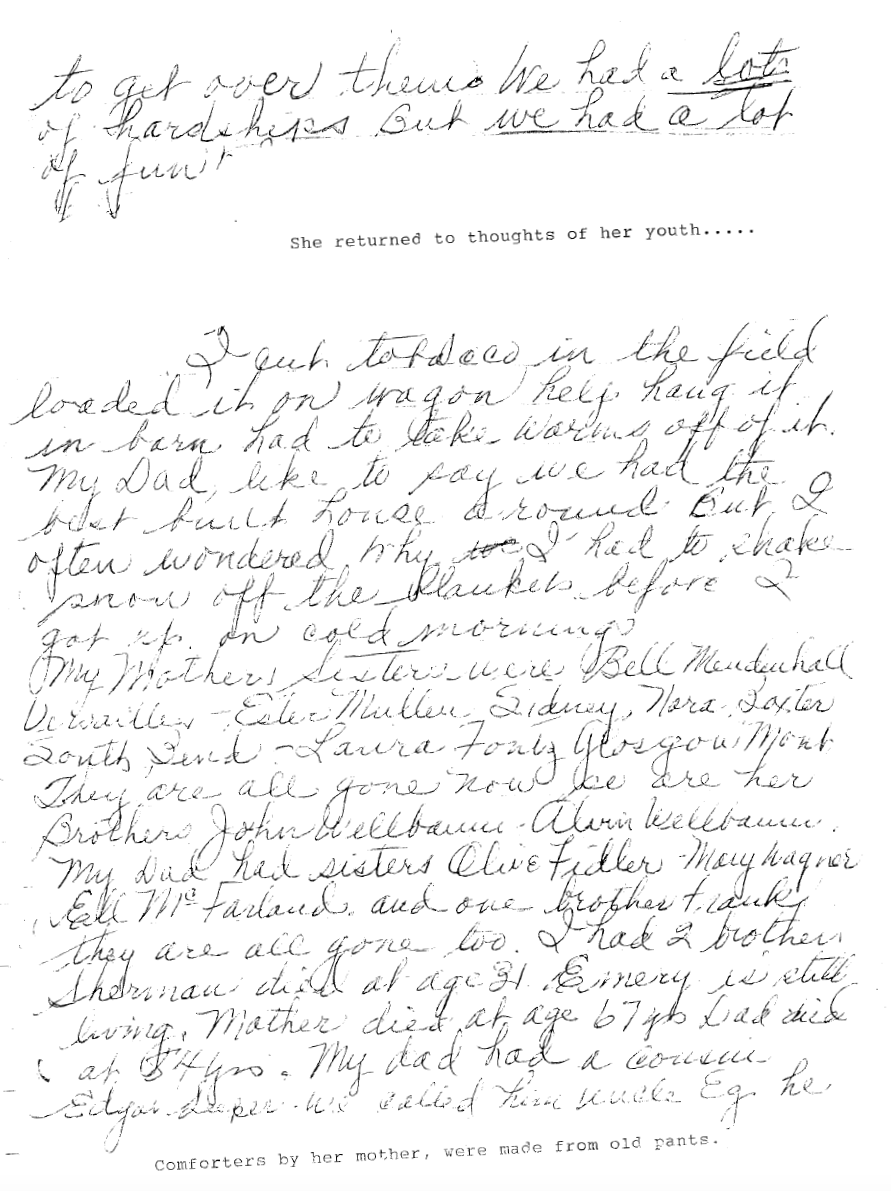 to get over them. We had a lots
of hardships But we had a lot
of fun!
She returned to thoughts of her youth.....
I cut tobacco in the field
loaded it on wagon help hang it
in barn had to take worms off of it.
My Dad like to say we had the
best built house around But I
often wondered why I had to shake
snow off the blankets before I
got up on cold mornings
My Mothers sisters were Bell Mendenhall
Versailles - Ester Mullen Sidney, Nora
South Bend - Laura Fontz Glosgow Mont
They are all gone now so are her
Brothers John Wellbaum - Alvin Wellbaum.
My Dad had sisters Olive Fidler - Mary Wagner
Mc Farland and one brother Frank
they are all gone too. I had 2 brothers
Sherman died at age 31 Emery is still
living. Mother died at age 67 yrs Dad died
at 84 yrs. My dad had a cousin
Edgar we called him uncle Eg. he
Comforters by her mother, were made from old pants.